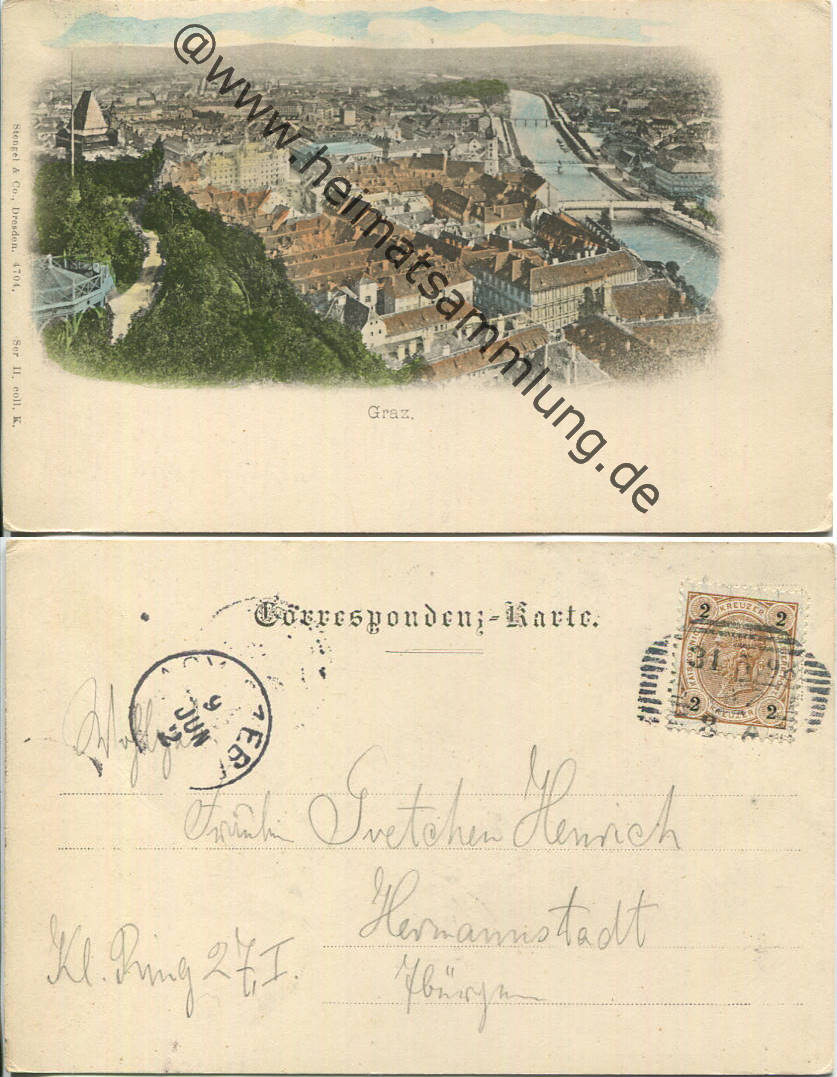 @www.heimatsammlung.de
Stengel & Co., Dresden. 4704.
Ser II, coll. K.
Graz.
Correspondenz-Karte.
2 KREUZER 2
31 98
2 KREUZER 2
9 JUN
Fräulein Gretchen Henrich
Hermannstadt
Kl. Ring 27, I.